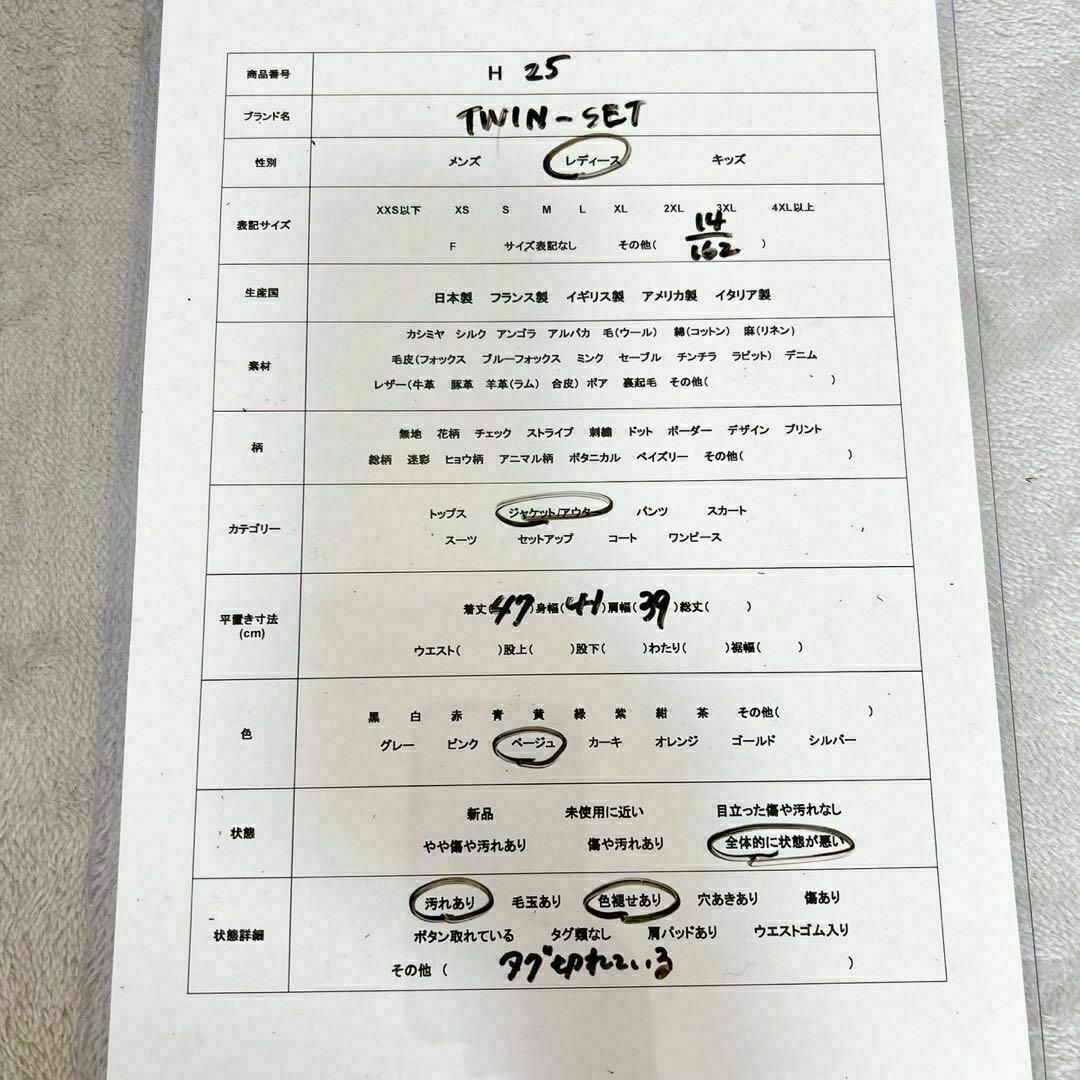 商品番号 H 25
ブランド名 TWIN-SET
性別 メンズ レディース キッズ
表記サイズ XXS以下 XS S M L XL 2XL 3XL 4XL以上
F サイズ表記なし その他( 14/162 )
生産国 日本製 フランス製 イギリス製 アメリカ製 イタリア製
素材 カシミヤ シルク アンゴラ アルパカ 毛(ウール) 綿(コットン) 麻(リネン)
毛皮(フォックス ブルーフォックス ミンク セーブル チンチラ ラビット) デニム
レザー(牛革 豚革 羊革(ラム) 合皮) ボア 裏起毛 その他( )
柄 無地 花柄 チェック ストライプ 刺繍 ドット ボーダー デザイン プリント
総柄 迷彩 ヒョウ柄 アニマル柄 ボタニカル ペイズリー その他( )
カテゴリー トップス ジャケット/アウター パンツ スカート
スーツ セットアップ コート ワンピース
平置き寸法(cm) 着丈(47)身幅(41)肩幅(39)総丈( )
ウエスト( )股上( )股下( )わたり( )裾幅( )
色 黒 白 赤 青 黄 緑 紫 紺 茶 その他( )
グレー ピンク ベージュ カーキ オレンジ ゴールド シルバー
状態 新品 未使用に近い 目立った傷や汚れなし
やや傷や汚れあり 傷や汚れあり 全体的に状態が悪い
状態詳細 汚れあり 毛玉あり 色褪せあり 穴あきあり 傷あり
ボタン取れている タグ類なし 肩パッドあり ウエストゴム入り
その他 ( タグ切れている )